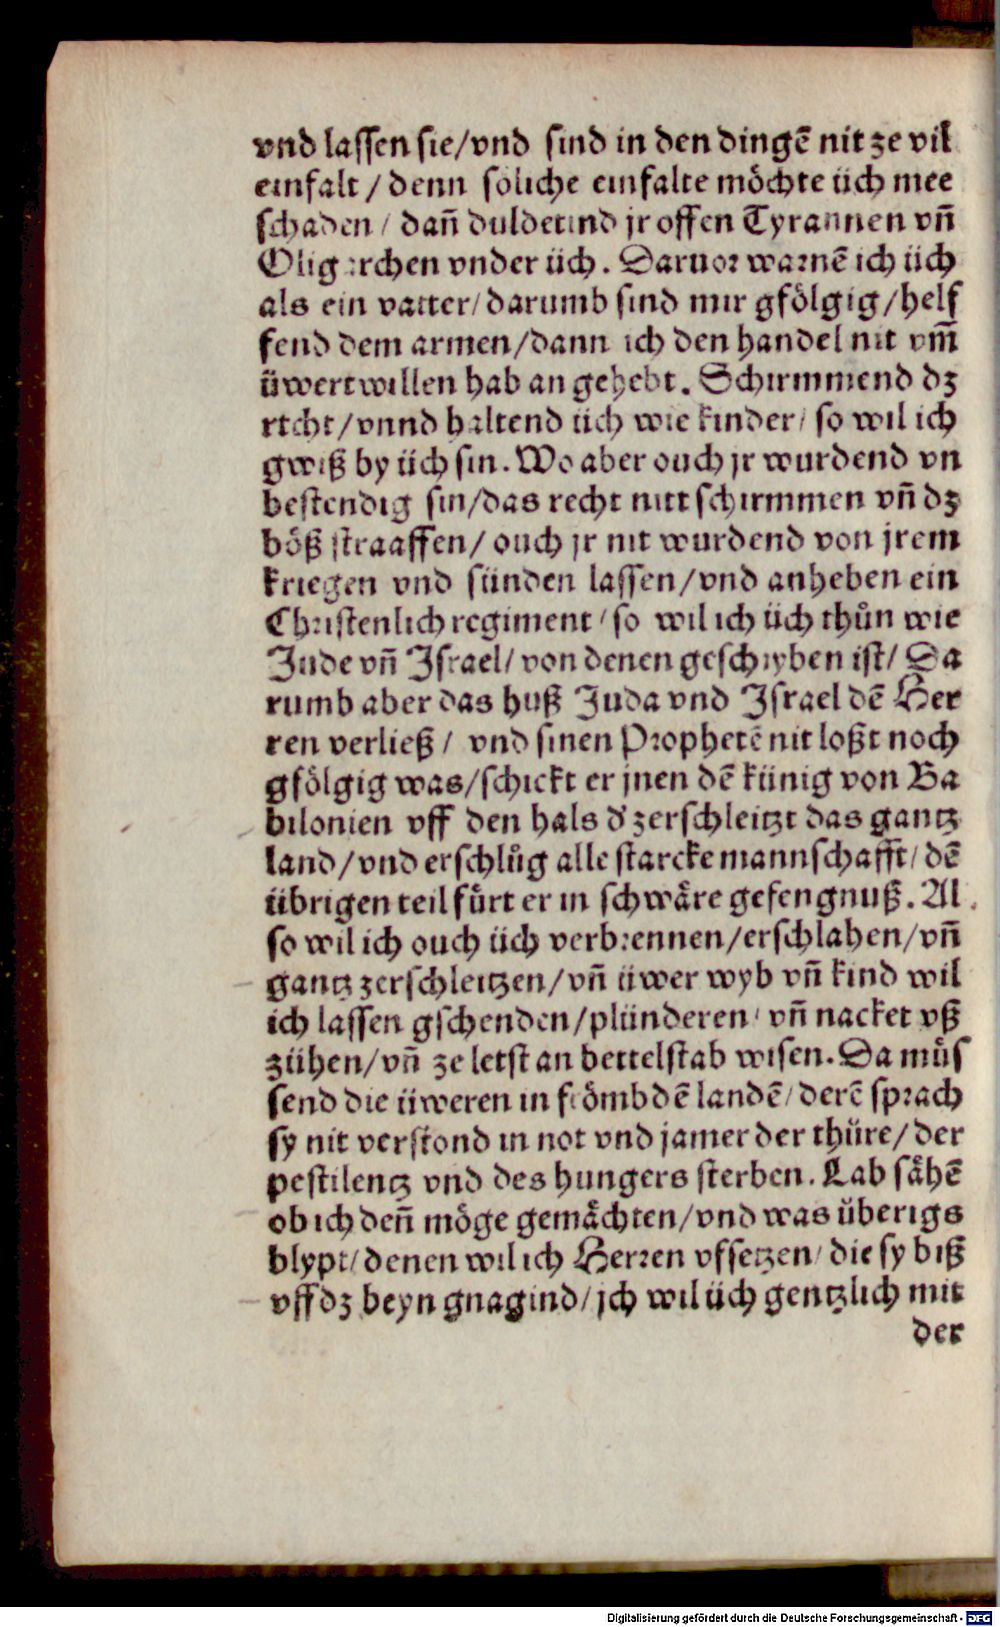 vnd lassen sie/vnd sind in den dingē nit ze vil
einfalt / denn soliche einfalte möchte üch mee
schaden / dañ duldetind jr offen Tyrannen vñ
Oligarchen vnder üch. Daruor warnē ich üch
als ein vatter/darumb sind mir gfölgig/helf
fend dem armen/dann ich den handel nit vm̄
üwert willen hab an gehebt. Schirmmend dz
recht/vnnd haltend üch wie kinder/ so wil ich
gwiß by üch sin. Wo aber ouch jr wurdend vn
bestendig sin/das recht nitt schirmmen vñ dz
böß straaffen/ ouch jr nit wurdend von jrem
kriegen vnd sünden lassen/vnd anheben ein
Christenlich regiment/so wil ich üch thůn wie
Jude vñ Jsrael/ von denen geschryben ist/ Da
rumb aber das huß Juda vnd Jsrael dē Her
ren verließ/ vnd sinen Prophetē nit loßt noch
gfölgig was/schickt er jnen dē künig von Ba
bilonien vff den hals d' zerschleitzt das gantz
land/vnd erschlůg alle starcke mannschafft/ dē
übrigen teil fůrt er in schwåre gefengnuß. Al
so wil ich ouch üch verbrennen/erschlahen/vñ
gantz zerschleitzen/vñ üwer wyb vñ kind wil
ich lassen gschenden/plünderen/ vñ nacket vß
zühen/vñ ze letst an bettelstab wisen. Da můs
send die üweren in frömbdē landē/ derē sprach
sy nit verstond in not vnd jamer der thüre/ der
pestilentz vnd des hungers sterben. Lab såhē
ob ich deñ möge gemåchten/vnd was überigs
blypt/denen wil ich Herren vfsetzen/ die sy biß
vff dz beyn gnagind/jch wil üch gentzlich mit
der
Digitalisierung gefördert durch die Deutsche Forschungsgemeinschaft - DFG